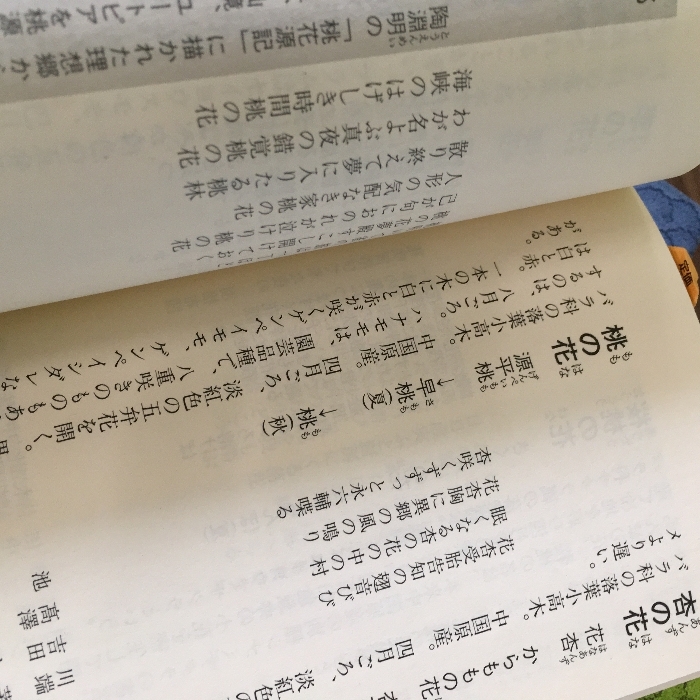 杏の花 花杏 からももの花
バラ科の落葉小高木。中国原産。四月ごろ、淡紅色の
メより遅い。
花杏受胎告知の翅音びび 川端
眠くなる杏の花の中の村 吉田
花杏胸に異郷の風の鳴り 高澤
杏咲くずずずっと永六輔喋る 池
桃の花 源平桃 ↓早桃(夏) ↓桃(秋)
バラ科の落葉小高木。中国原産。四月ごろ、淡紅色の五弁花を開く。
するのは、八月ごろ。ハナモモは、園芸品種で、八重咲きのものもあ
は白と赤。一本の木に白と赤が咲くゲンペイモモ、ゲンペイシダレな
がある。
己が句におのれが泣けり桃の花
人形の気配なき家桃の花
散り終えて夢に入りたる桃林
わが名よぶ真夜の錯覚桃の花
海峡のはげしき時間桃の花
陶淵明の「桃花源記」に描かれた理想郷か
ユートピアを桃源